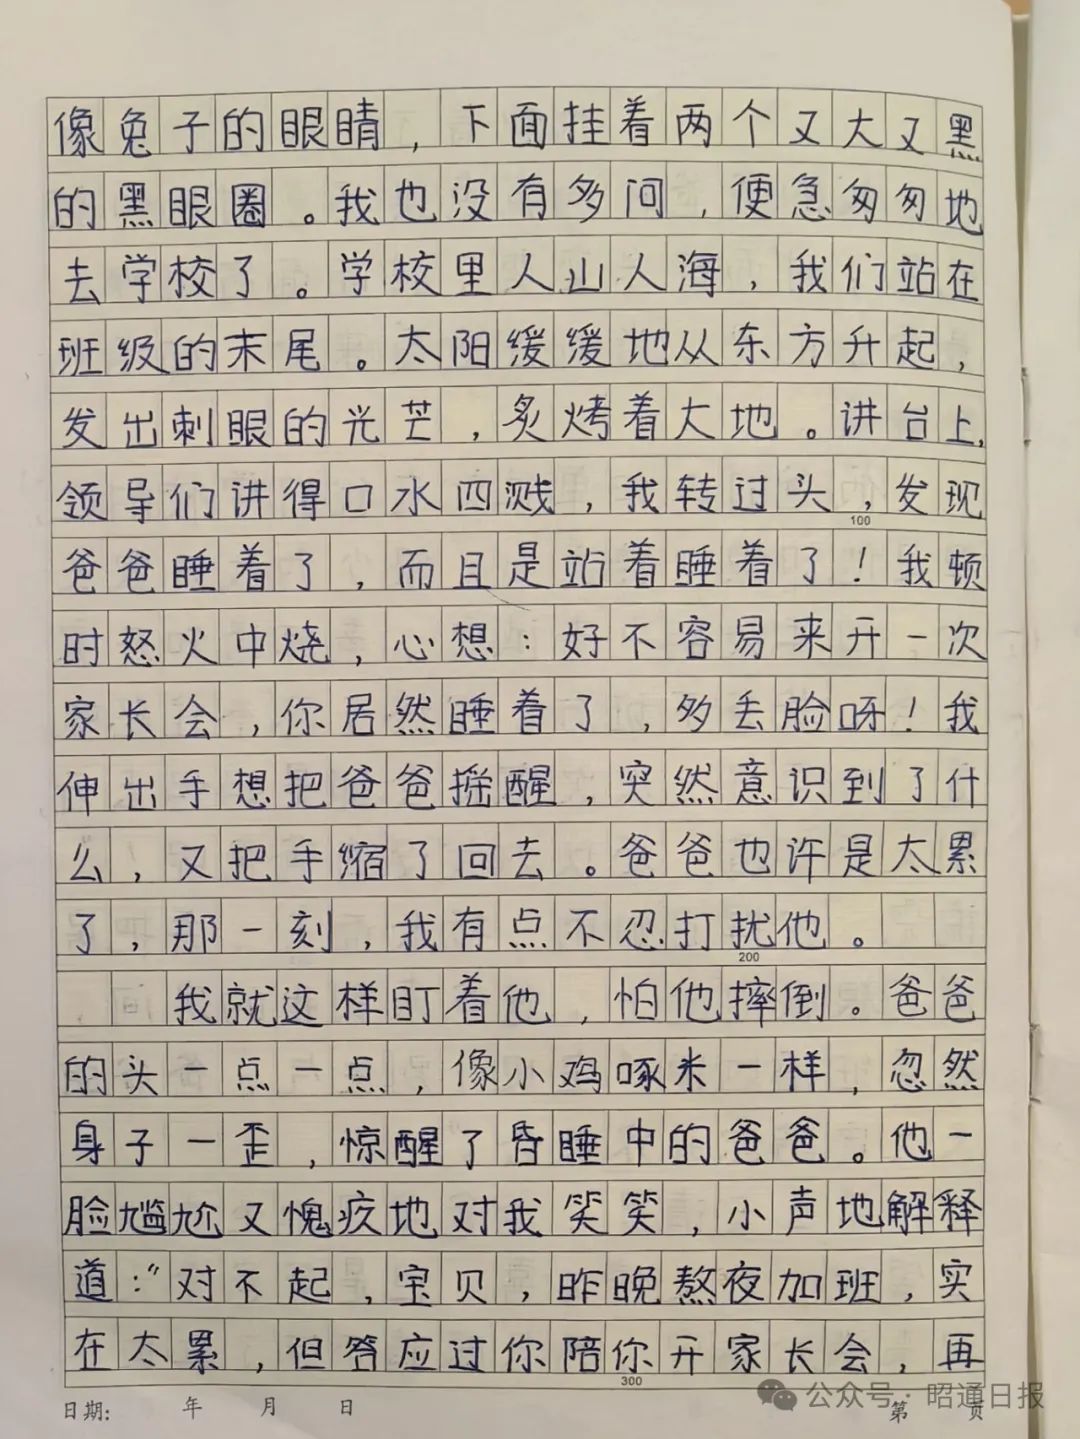 像兔子的眼睛，下面挂着两个又大又黑
的黑眼圈。我也没有多问，便急匆匆地
去学校了。学校里人山人海，我们站在
班级的末尾。太阳缓缓地从东方升起，
发出刺眼的光芒，炙烤着大地。讲台上，
领导们讲得口水四溅，我转过头，发现
100
爸爸睡着了，而且是站着睡着了！我顿
时怒火中烧，心想：好不容易来开一次
家长会，你居然睡着了，多丢脸呀！我
伸出手想把爸爸摇醒，突然意识到了什
么，又把手缩了回去。爸爸也许是太累
了，那一刻，我有点不忍打扰他。
200
我就这样盯着他，怕他摔倒。爸爸
的头一点一点，像小鸡啄米一样，忽然
身子一歪，惊醒了昏睡中的爸爸。他一
脸尴尬又愧疚地对我笑笑，小声地解释
道：“对不起，宝贝，昨晚熬夜加班，实
在太累，但答应过你陪你开家长会，再
300
日期： 年 月 日 第 页
公众号·昭通日报